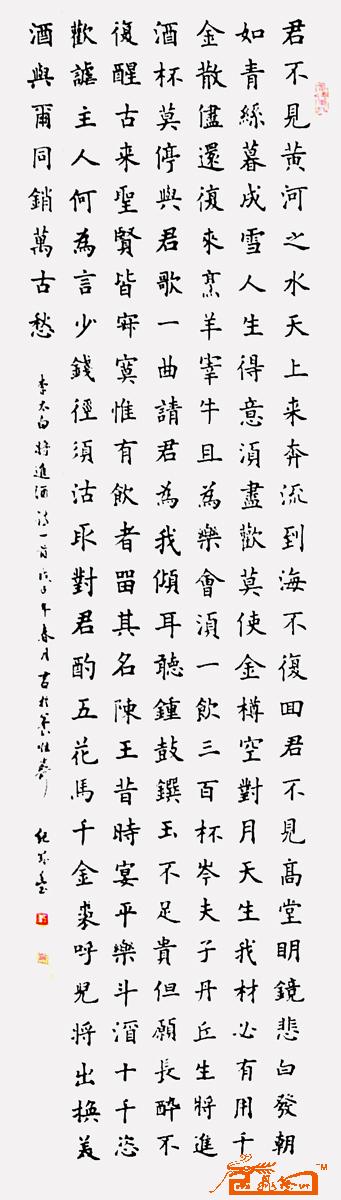 君不見黃河之水天上来奔流到海不復回君不見高堂明鏡悲白發朝
如青絲暮成雪人生得意須盡歡莫使金樽空對月天生我材必有用千
金散儘還復來烹羊宰牛且為樂會須一飲三百杯岑夫子丹丘生將進
酒杯莫停與君歌一曲請君為我傾耳聽鍾鼓饌玉不足貴但願長醉不
復醒古来聖賢皆寂寞惟有飲者留其名陳王昔時宴平樂斗酒十千恣
歡謔主人何為言少錢徑須沽取對君酌五花馬千金裘呼兒將出換美
酒與爾同銷萬古愁
李太白將進酒詩一首戊子年春月書於